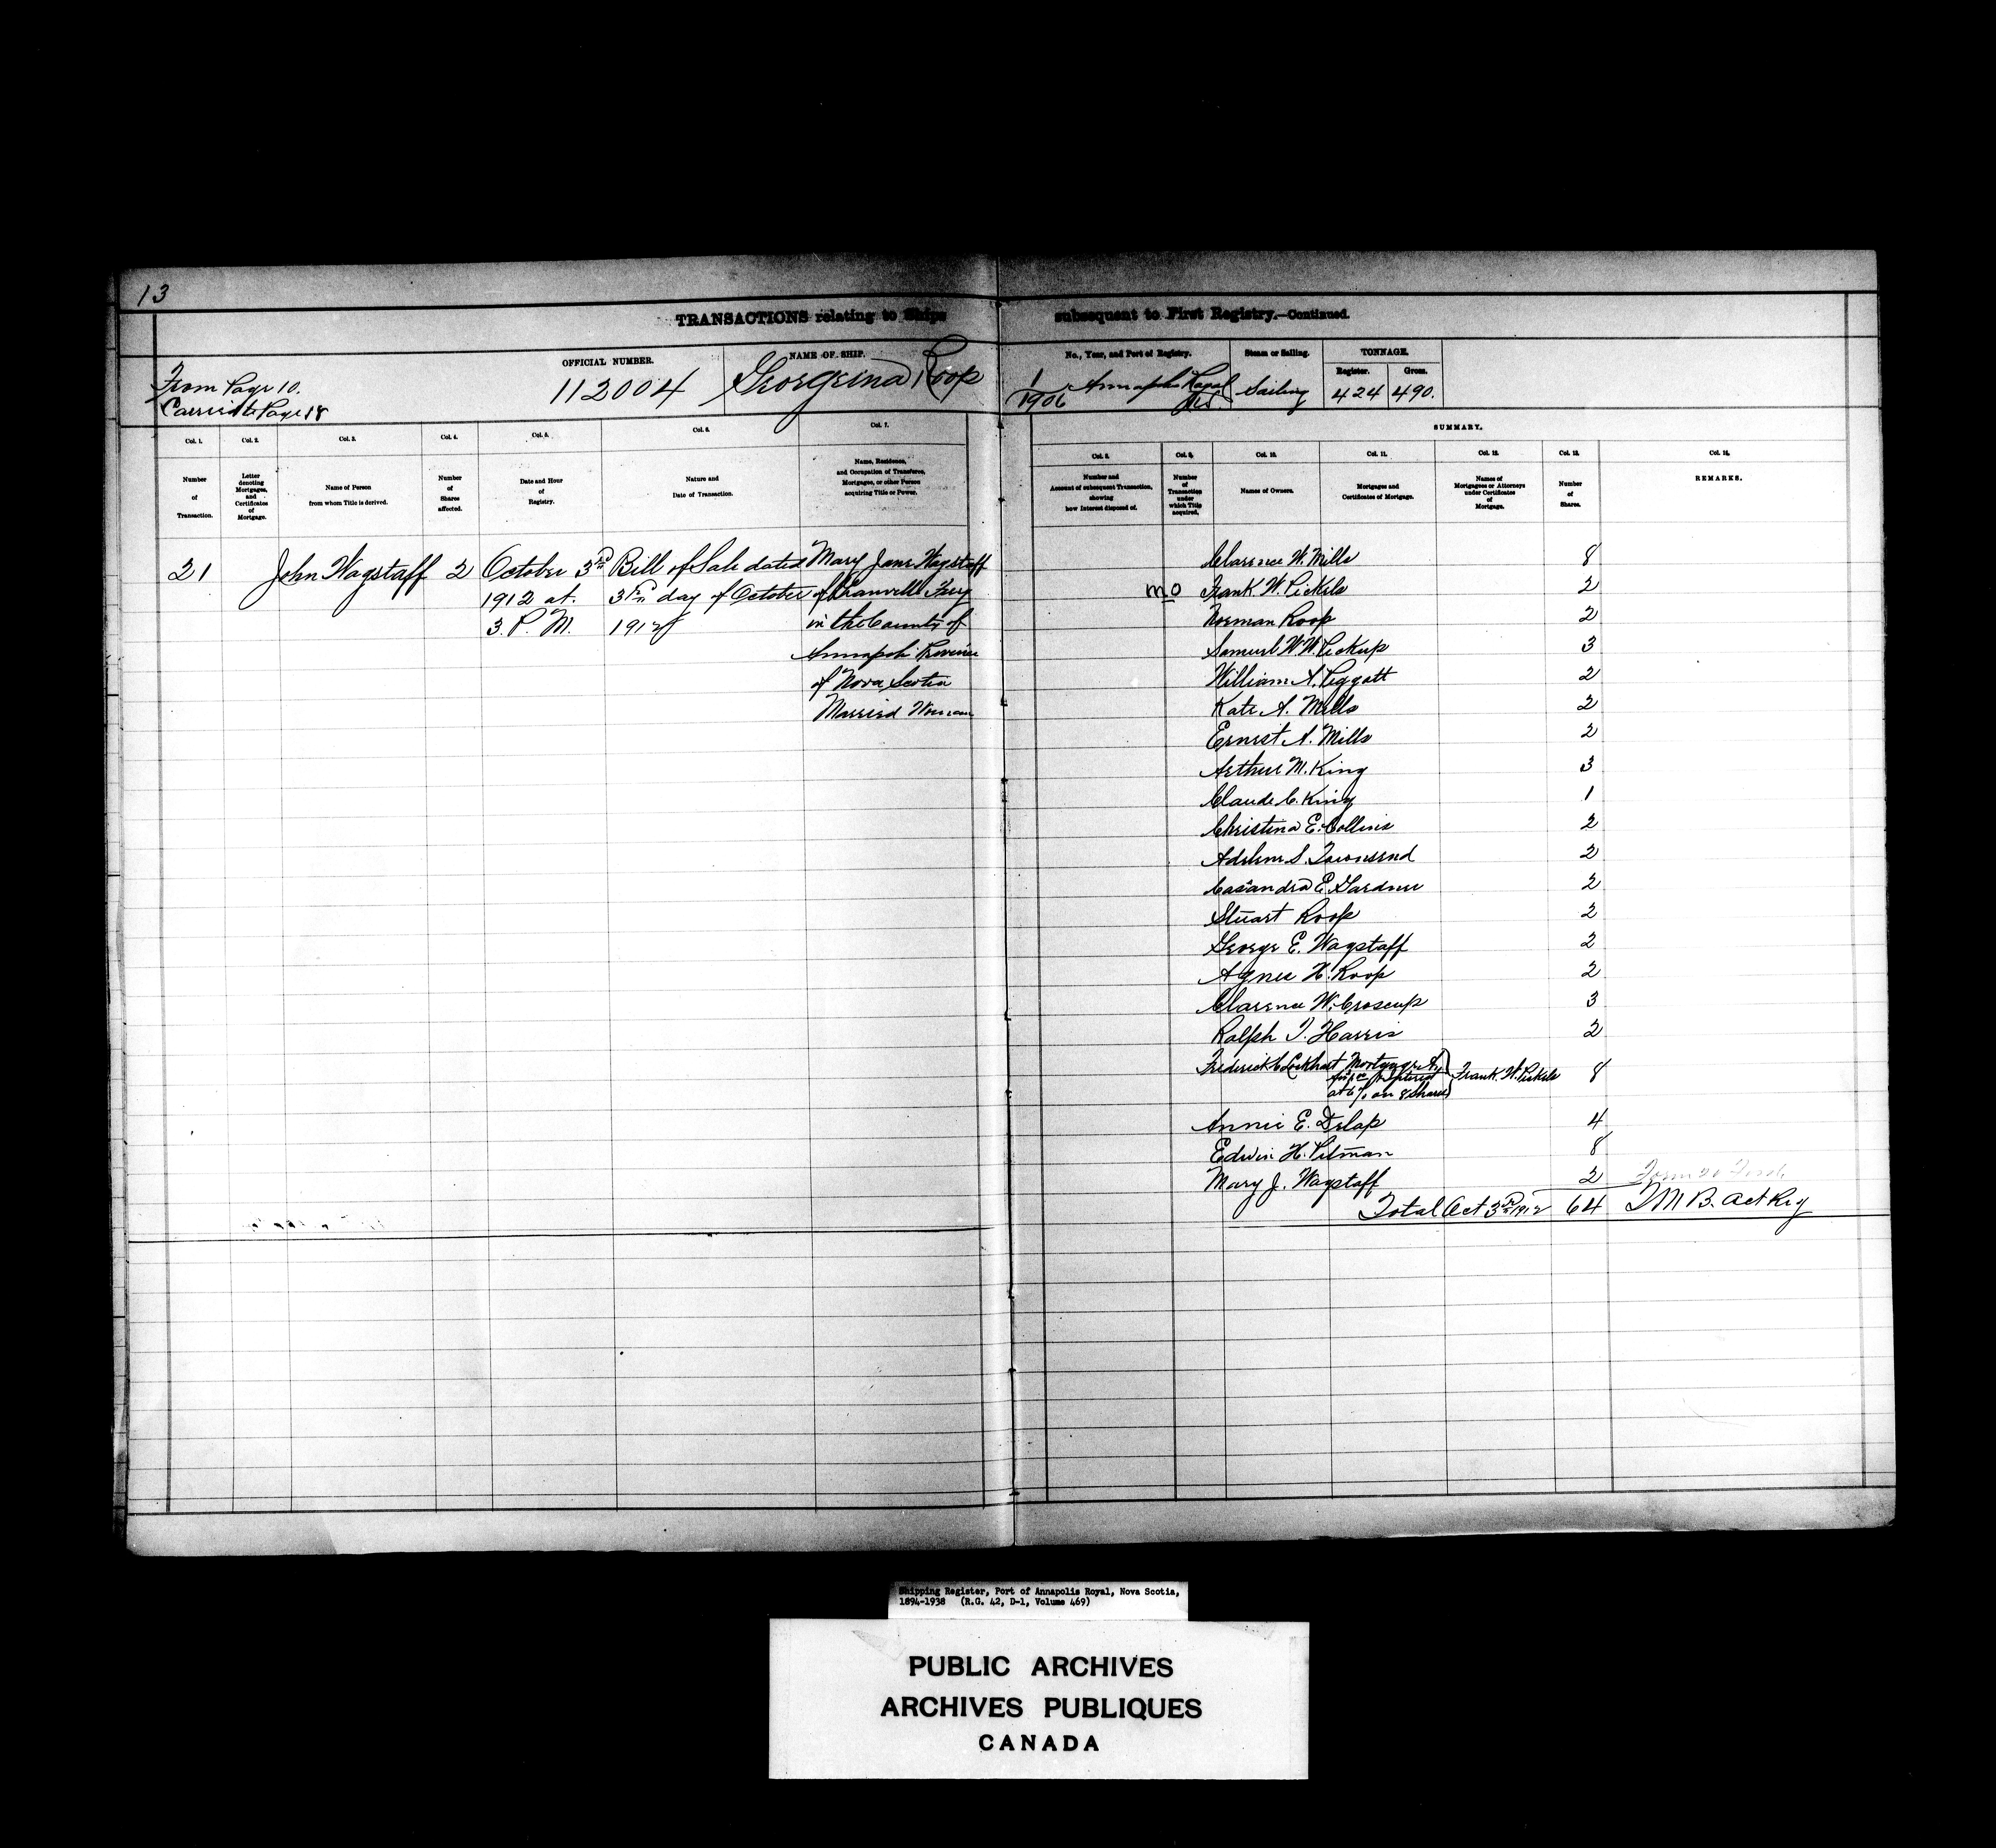 13
TRANSACTIONS relating to Ships subsequent to First Registry.—Continued.
From Page 10.
Carried to Page 18
OFFICIAL NUMBER.
112004
NAME OF SHIP.
Georgina Roop
No., Year, and Port of Registry.
1/1906 Annapolis Royal NS.
Steam or Sailing.
Sailing
TONNAGE.
Register.
424
Gross.
490.
SUMMARY.
Col. 1.
Number of Transaction.
Col. 2.
Letter denoting Mortgages, and Certificates of Mortgage.
Col. 3.
Name of Person from whom Title is derived.
Col. 4.
Number of Shares affected.
Col. 5.
Date and Hour of Registry.
Col. 6.
Nature and Date of Transaction.
Col. 7.
Name, Residence, and Occupation of Transferee, Mortgagee, or other Person acquiring Title or Power.
Col. 8.
Number and Account of subsequent Transaction, showing how Interest disposed of.
Col. 9.
Number of Transaction under which Title acquired.
Col. 10.
Names of Owners.
Col. 11.
Mortgages and Certificates of Mortgage.
Col. 12.
Names of Mortgagees or Attorneys under Certificates of Mortgage.
Col. 13.
Number of Shares.
Col. 14.
REMARKS.
21 John Wagstaff 2 October 3rd Bill of Sale dated Mary Jane Wagstaff
1912 at 3rd day of October of Granville Ferry
3. P. M. 1912 in the County of
Annapolis Province
of Nova Scotia
Married Woman
Clarence W. Mills 8
mo Frank W. Pickels 2
Norman Roop 2
Samuel W. W. Pickup 3
William A. Piggott 2
Kate A. Mills 2
Ernest A. Mills 2
Arthur M. King 3
Claude C. King 1
Christina E. Collins 2
Adelene S. Townsend 2
Casandra E. Gardner 2
Stuart Roop 2
George E. Wagstaff 2
Agnes H. Roop 2
Clarence W. Croscup 3
Ralph T. Harris 2
Frederick C Lockhart Mortgage A, Frank W. Pickels 8
interest
at 6% on 8 shares
Annie E. Delap 4
Edwin H. Pitman 8
Mary J. Wagstaff 2
Total Oct 3rd 1912 64 TMB. Act Reg
Shipping Register, Port of Annapolis Royal, Nova Scotia,
1894-1938 (R.G. 42, D-1, Volume 469)
PUBLIC ARCHIVES
ARCHIVES PUBLIQUES
CANADA